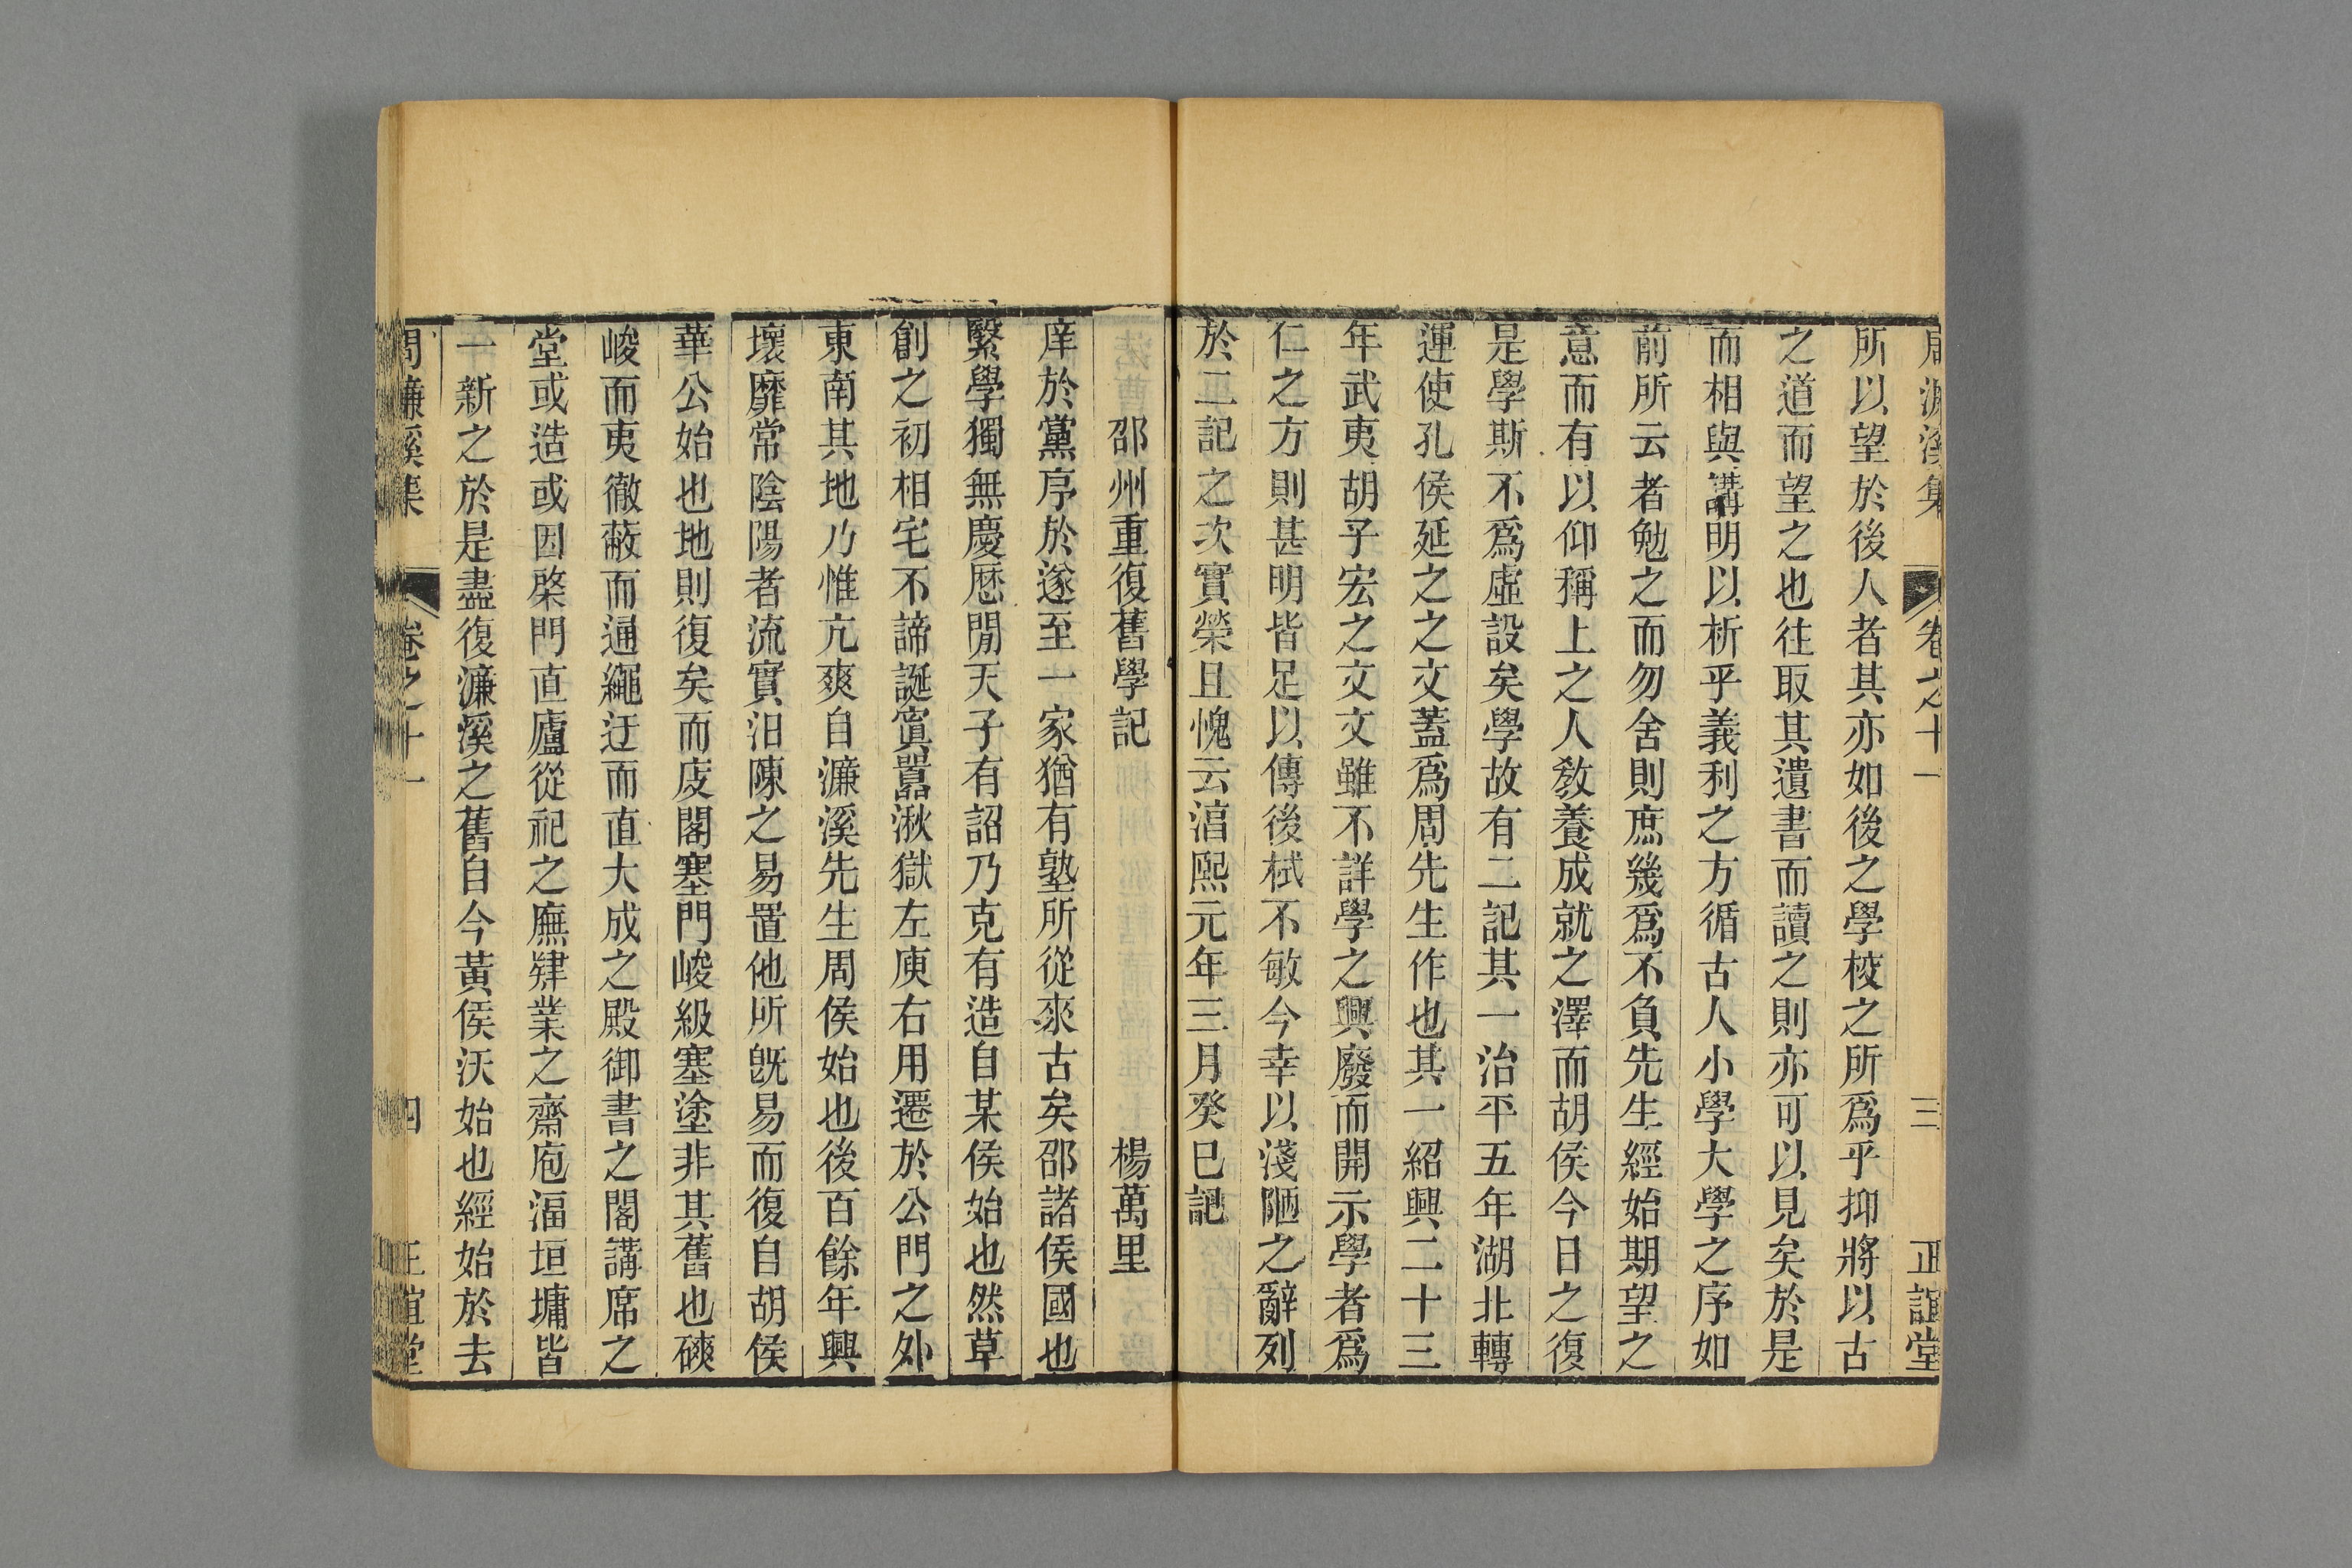 周濂溪集 卷之十一 三 正誼堂
所以望於後人者其亦如後之學校之所爲乎抑將以古
之道而望之也往取其遺書而讀之則亦可以見矣於是
而相與講明以析乎義利之方循古人小學大學之序如
前所云者勉之而勿舍則庶幾爲不負先生經始期望之
意而有以仰稱上之人敎養成就之澤而胡侯今日之復
是學斯不爲虛設矣學故有二記其一治平五年湖北轉
運使孔侯延之之文蓋爲周先生作也其一紹興二十三
年武夷胡子宏之文文雖不詳學之興廢而開示學者爲
仁之方則甚明皆足以傳後栻不敏今幸以淺陋之辭列
於二記之次實榮且愧云湻熙元年三月癸巳記
邵州重復舊學記 楊萬里
庠於黨序於遂至一家猶有塾所從來古矣邵諸侯國也
繄學獨無慶厯閒天子有詔乃克有造自某侯始也然草
創之初相宅不諦誕寘囂湫獄左庾右用遷於公門之外
東南其地乃惟亢爽自濂溪先生周侯始也後百餘年興
壞靡常陰陽者流實汨陳之易置他所旣易而復自胡侯
華公始也地則復矣而庋閣塞門峻級塞塗非其舊也磢
峻而夷徹蔽而通繩迂而直大成之殿御書之閣講席之
堂或造或因棨門直廬從祀之廡肄業之齋庖湢垣墉皆
一新之於是盡復濂溪之舊自今黃侯沃始也經始於去
周濂溪集 卷之十一 四 正誼堂